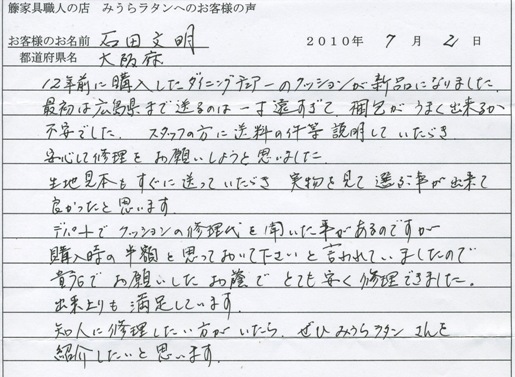 籐家具職人の店　みうらラタンへのお客様の声
お客様のお名前　石田文明　2010年 7月 2日
都道府県名　大阪府
12年前に購入したダイニングチェアーのクッションが新品になりました。
最初は広島県まで送るのは一寸遠すぎて、梱包がうまく出来るか
不安でした。スタッフの方に送料の件等説明していただき
安心して修理をお願いしようと思いました。
生地見本もすぐに送っていただき 実物を見て選ぶ事が出来て
良かったと思います。
デパートでクッションの修理代を聞いた事があるのですが
購入時の半額と思っておいて下さいと言われていましたので
貴店でお願いしたお蔭でとても安く修理できました。
出来上りも満足しています。
知人に修理したい方がいたら、ぜひみうらラタンさんを
紹介したいと思います。